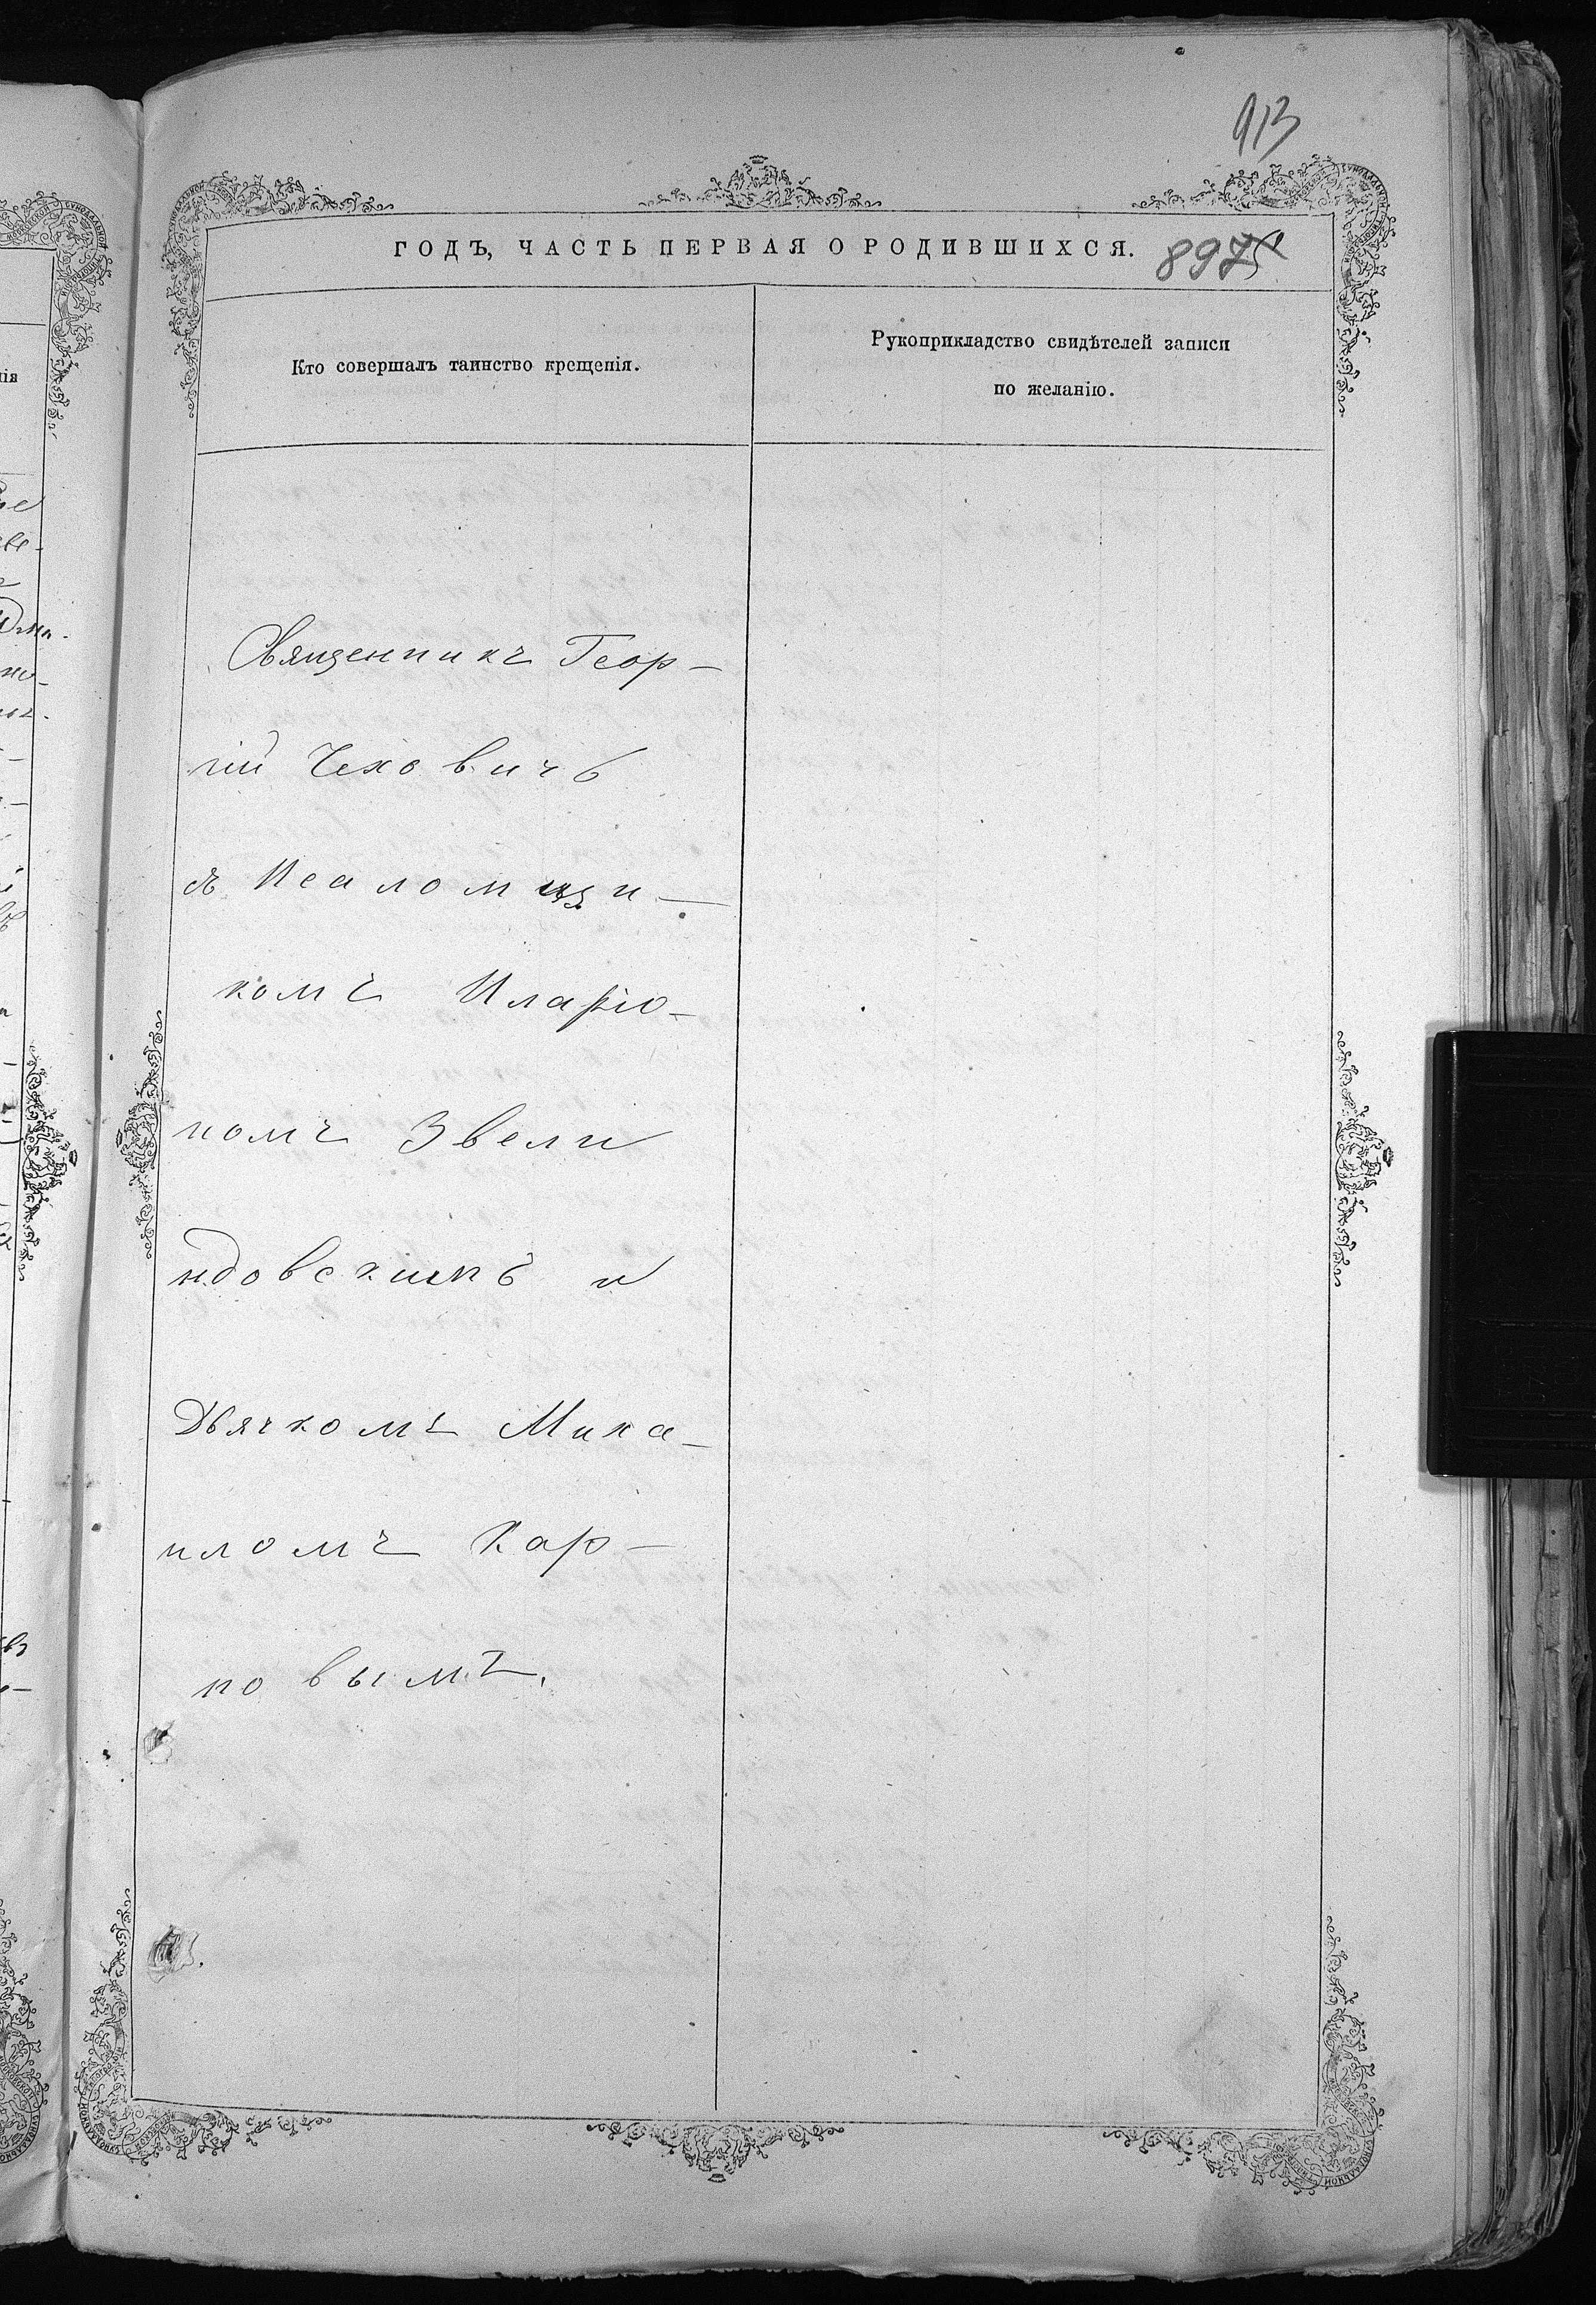 913
ГОДЪ, ЧАСТЬ ПЕРВАЯ О РОДИВШИХСЯ.
897
Кто совершалъ таинство крещенія.
Рукоприкладство свидѣтелей записи
по желанію.
Священникъ Геор-
гій Чеховичъ
съ Псаломщи-
комъ Иларіо-
номъ Звели
ндовскимъ и
Дьячкомъ Миха-
иломъ Кар-
повымъ.